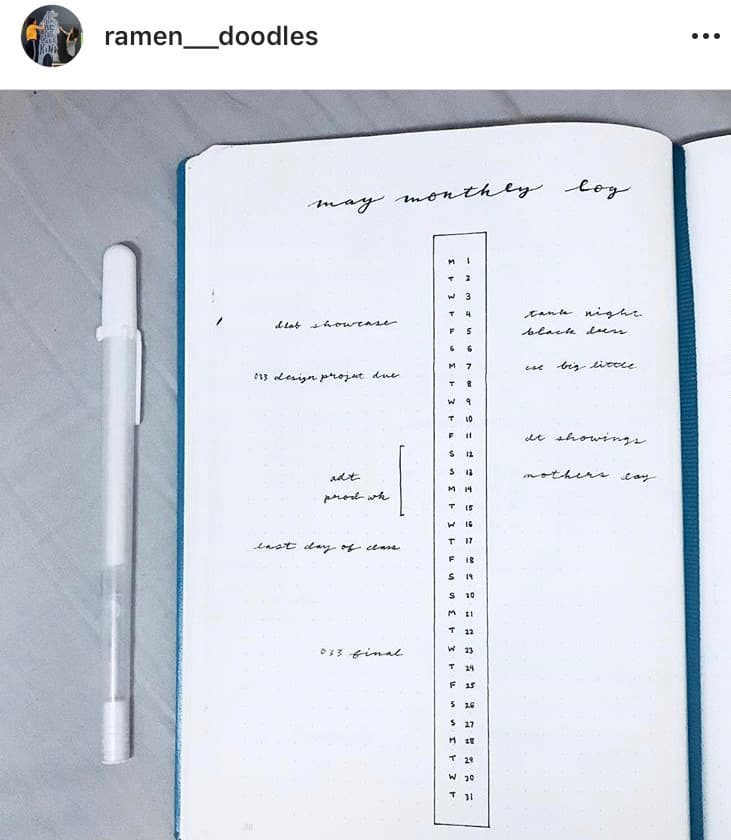 ramen__doodles
may monthly log
M 1
T 2
W 3
T 4
tank night
dlab showcase
F 5
black dress
S 6
M 7
big little
033 design project due
T 8
W 9
T 10
F 11
dt showings
S 12
S 13
mothers day
adt
M 14
prod wk
T 15
W 16
T 17
last day of class
F 18
S 19
S 20
M 21
T 22
W 23
033 final
T 24
F 25
S 26
S 27
M 28
T 29
W 30
T 31